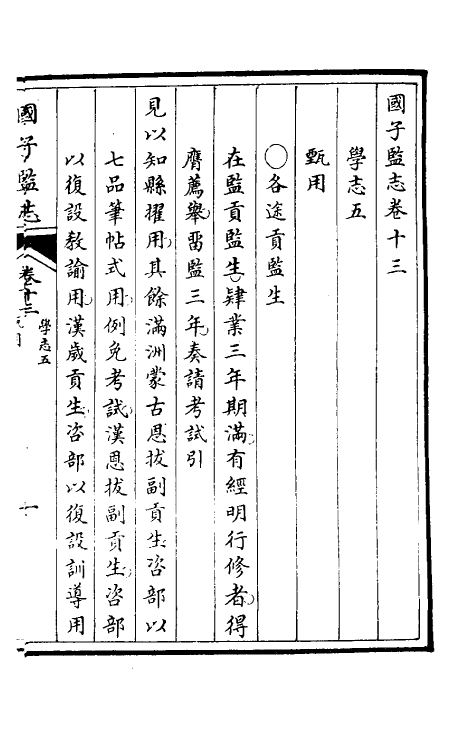 國子監志卷十三
學志五
甄用
○各途貢監生
在監貢監生肄業三年期滿有經明行修者得
膺薦舉留監三年奏請考試引
見以知縣擢用其餘滿洲蒙古恩拔副貢生咨部以
七品筆帖式用例免考試漢恩拔副貢生咨部
以復設教諭用漢歲貢生咨部以復設訓導用
國子監志
卷十三
學志五
一